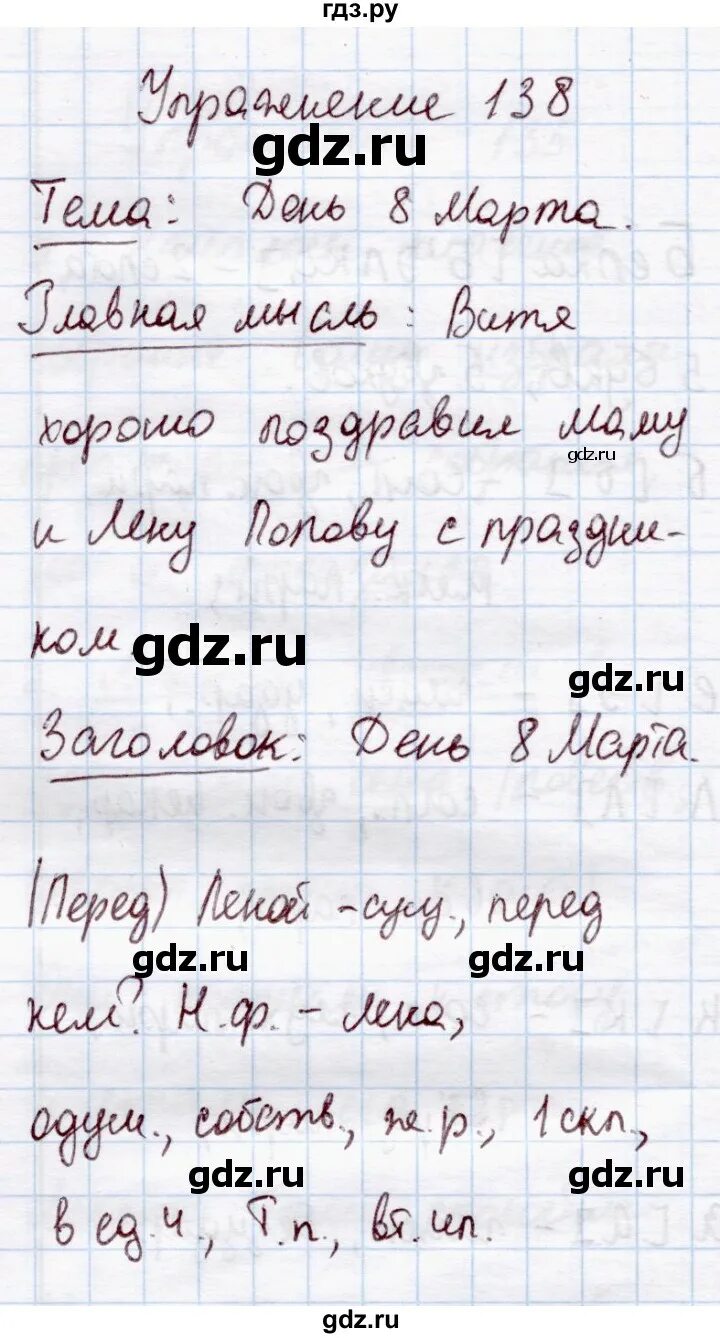 гдз.ру
Упражнение 138
gdz.ru
Тема: День 8 Марта.
Главная мысль: Витя
хорошо поздравил маму
gdz.ru
и Лену Попову с праздни-
ком.
gdz.ru
gdz.ru
Заголовок: День 8 Марта.
(Перед) Леной - сущ., перед
gdz.ru
gdz.ru
кем? Н.ф. - Лена,
одуш., собств., ж.р., 1 скл.,
gdz.ru
gdz.ru
в ед.ч., Т.п., вт.чл.
gdz.ru